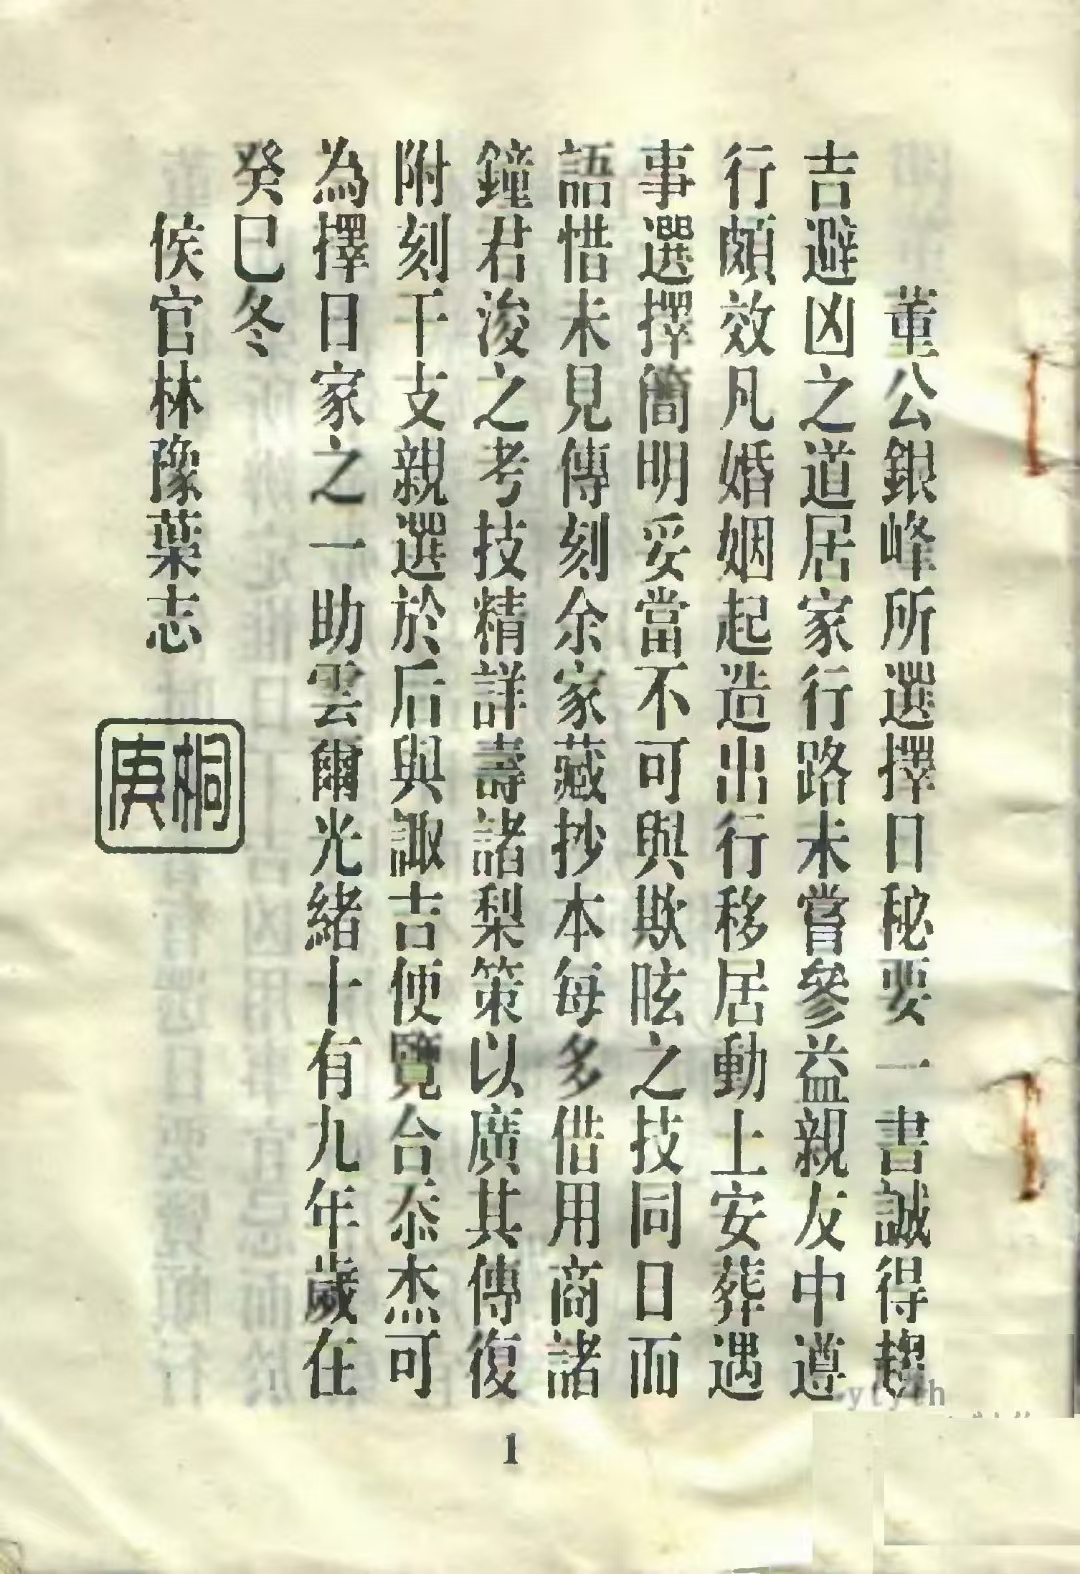 董公銀峰所選擇日秘要一書誠得趨
吉避凶之道居家行路未嘗參益親友中遵
行頗效凡婚姻起造出行移居動土安葬遇
事選擇簡明妥當不可與欺眩之技同日而
語惜未見傳刻余家藏抄本每多借用商諸
鐘君浚之考技精詳壽諸梨策以廣其傳復
附刻干支親選於后與諏吉便覽合忝杰可
為擇日家之一助雲爾光緒十有九年歲在
癸巳冬
侯官林豫葉志
桐
庚
1
ytyth